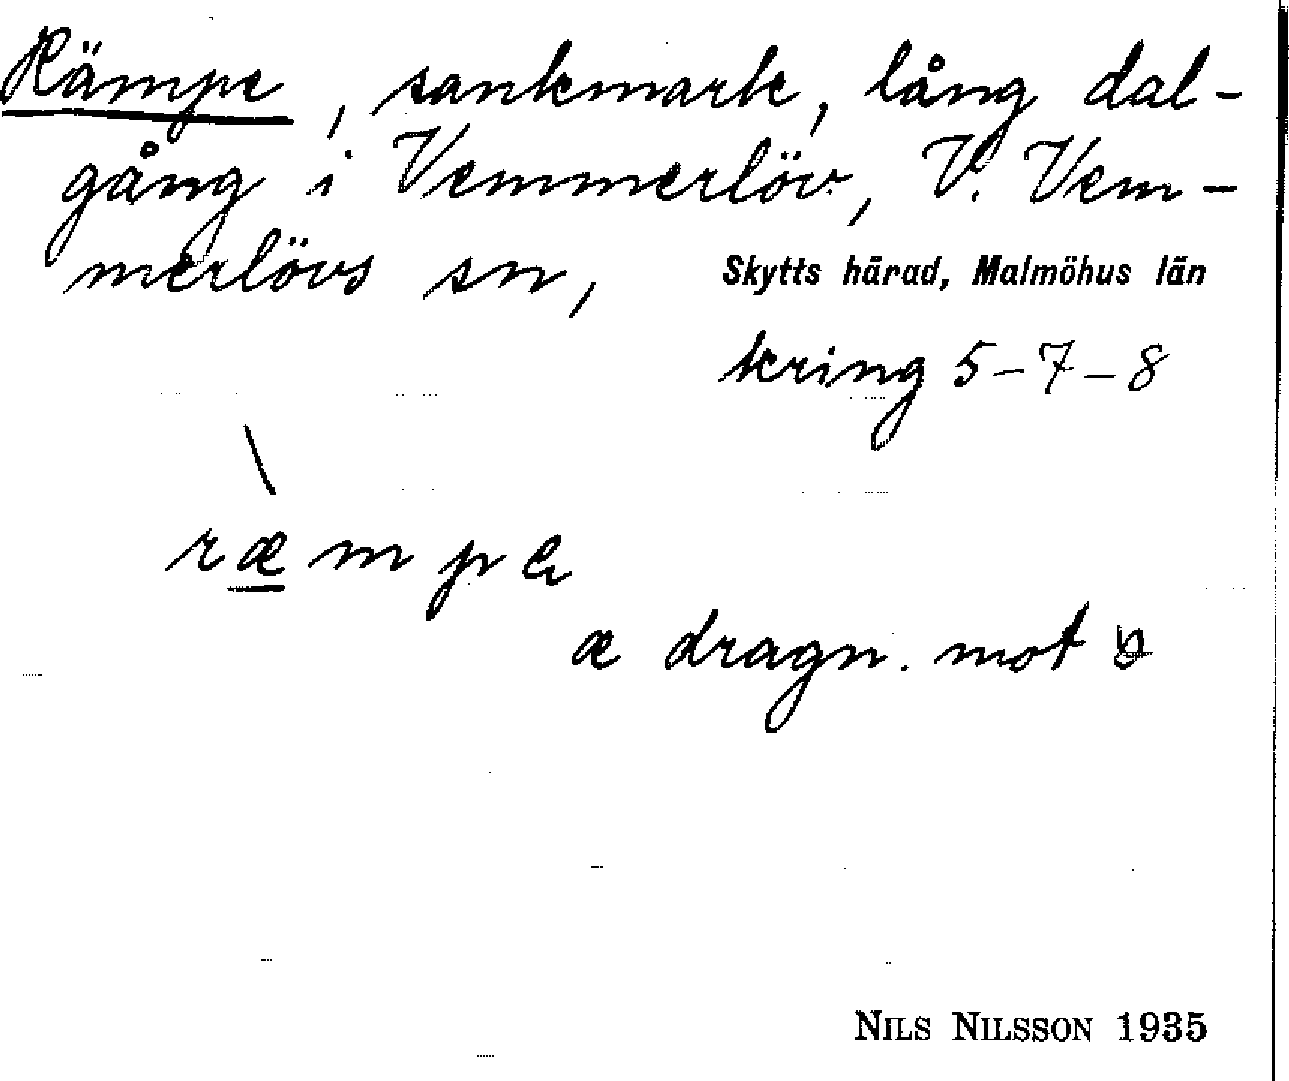 Rämpe, sankmark, lång dal-
gång i Vemmerlöv, V. Vem-
merlövs sn, Skytts härad, Malmöhus län
kring 5-7-8
ræmpe
æ dragn. mot
NILS NILSSON 1935